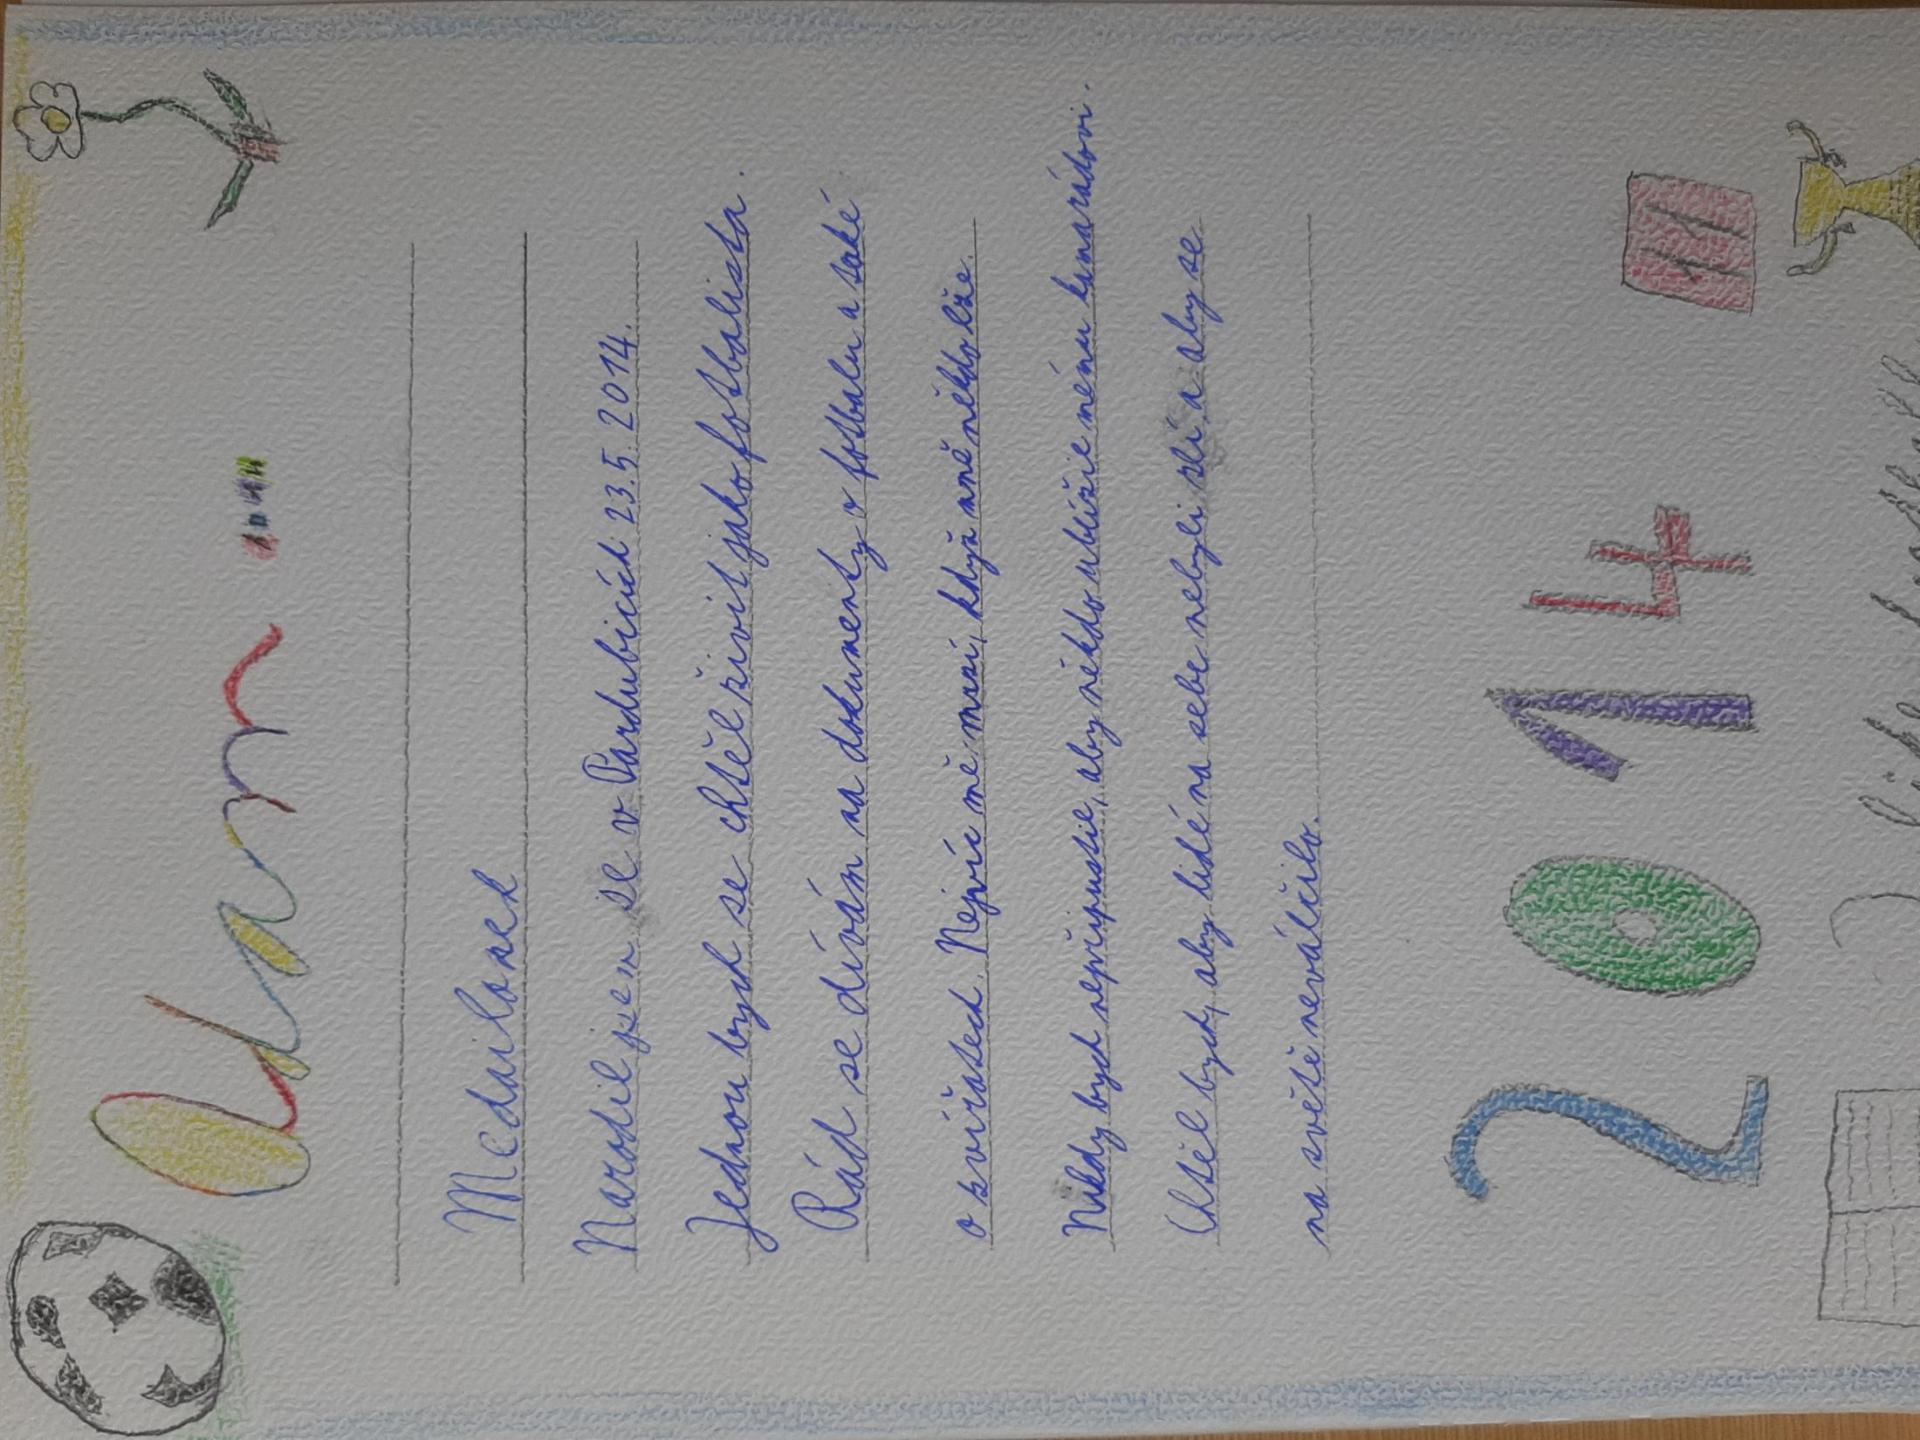 Adam
Medailonek
Narodil jsem se v Pardubicích 23.5. 2014.
Jednou bych se chtěl živit jako fotbalista.
Rád se dívám na dokumenty o fotbalu a také
o zvířatech. Nejvíc mě mrzí, když mně někdo lže.
Nikdy bych nepřipustil, aby někdo ublížil mému kamarádovi.
Chtěl bych, aby lidé na sebe nebyli zlí a aby se
na světě neválčilo.
2014